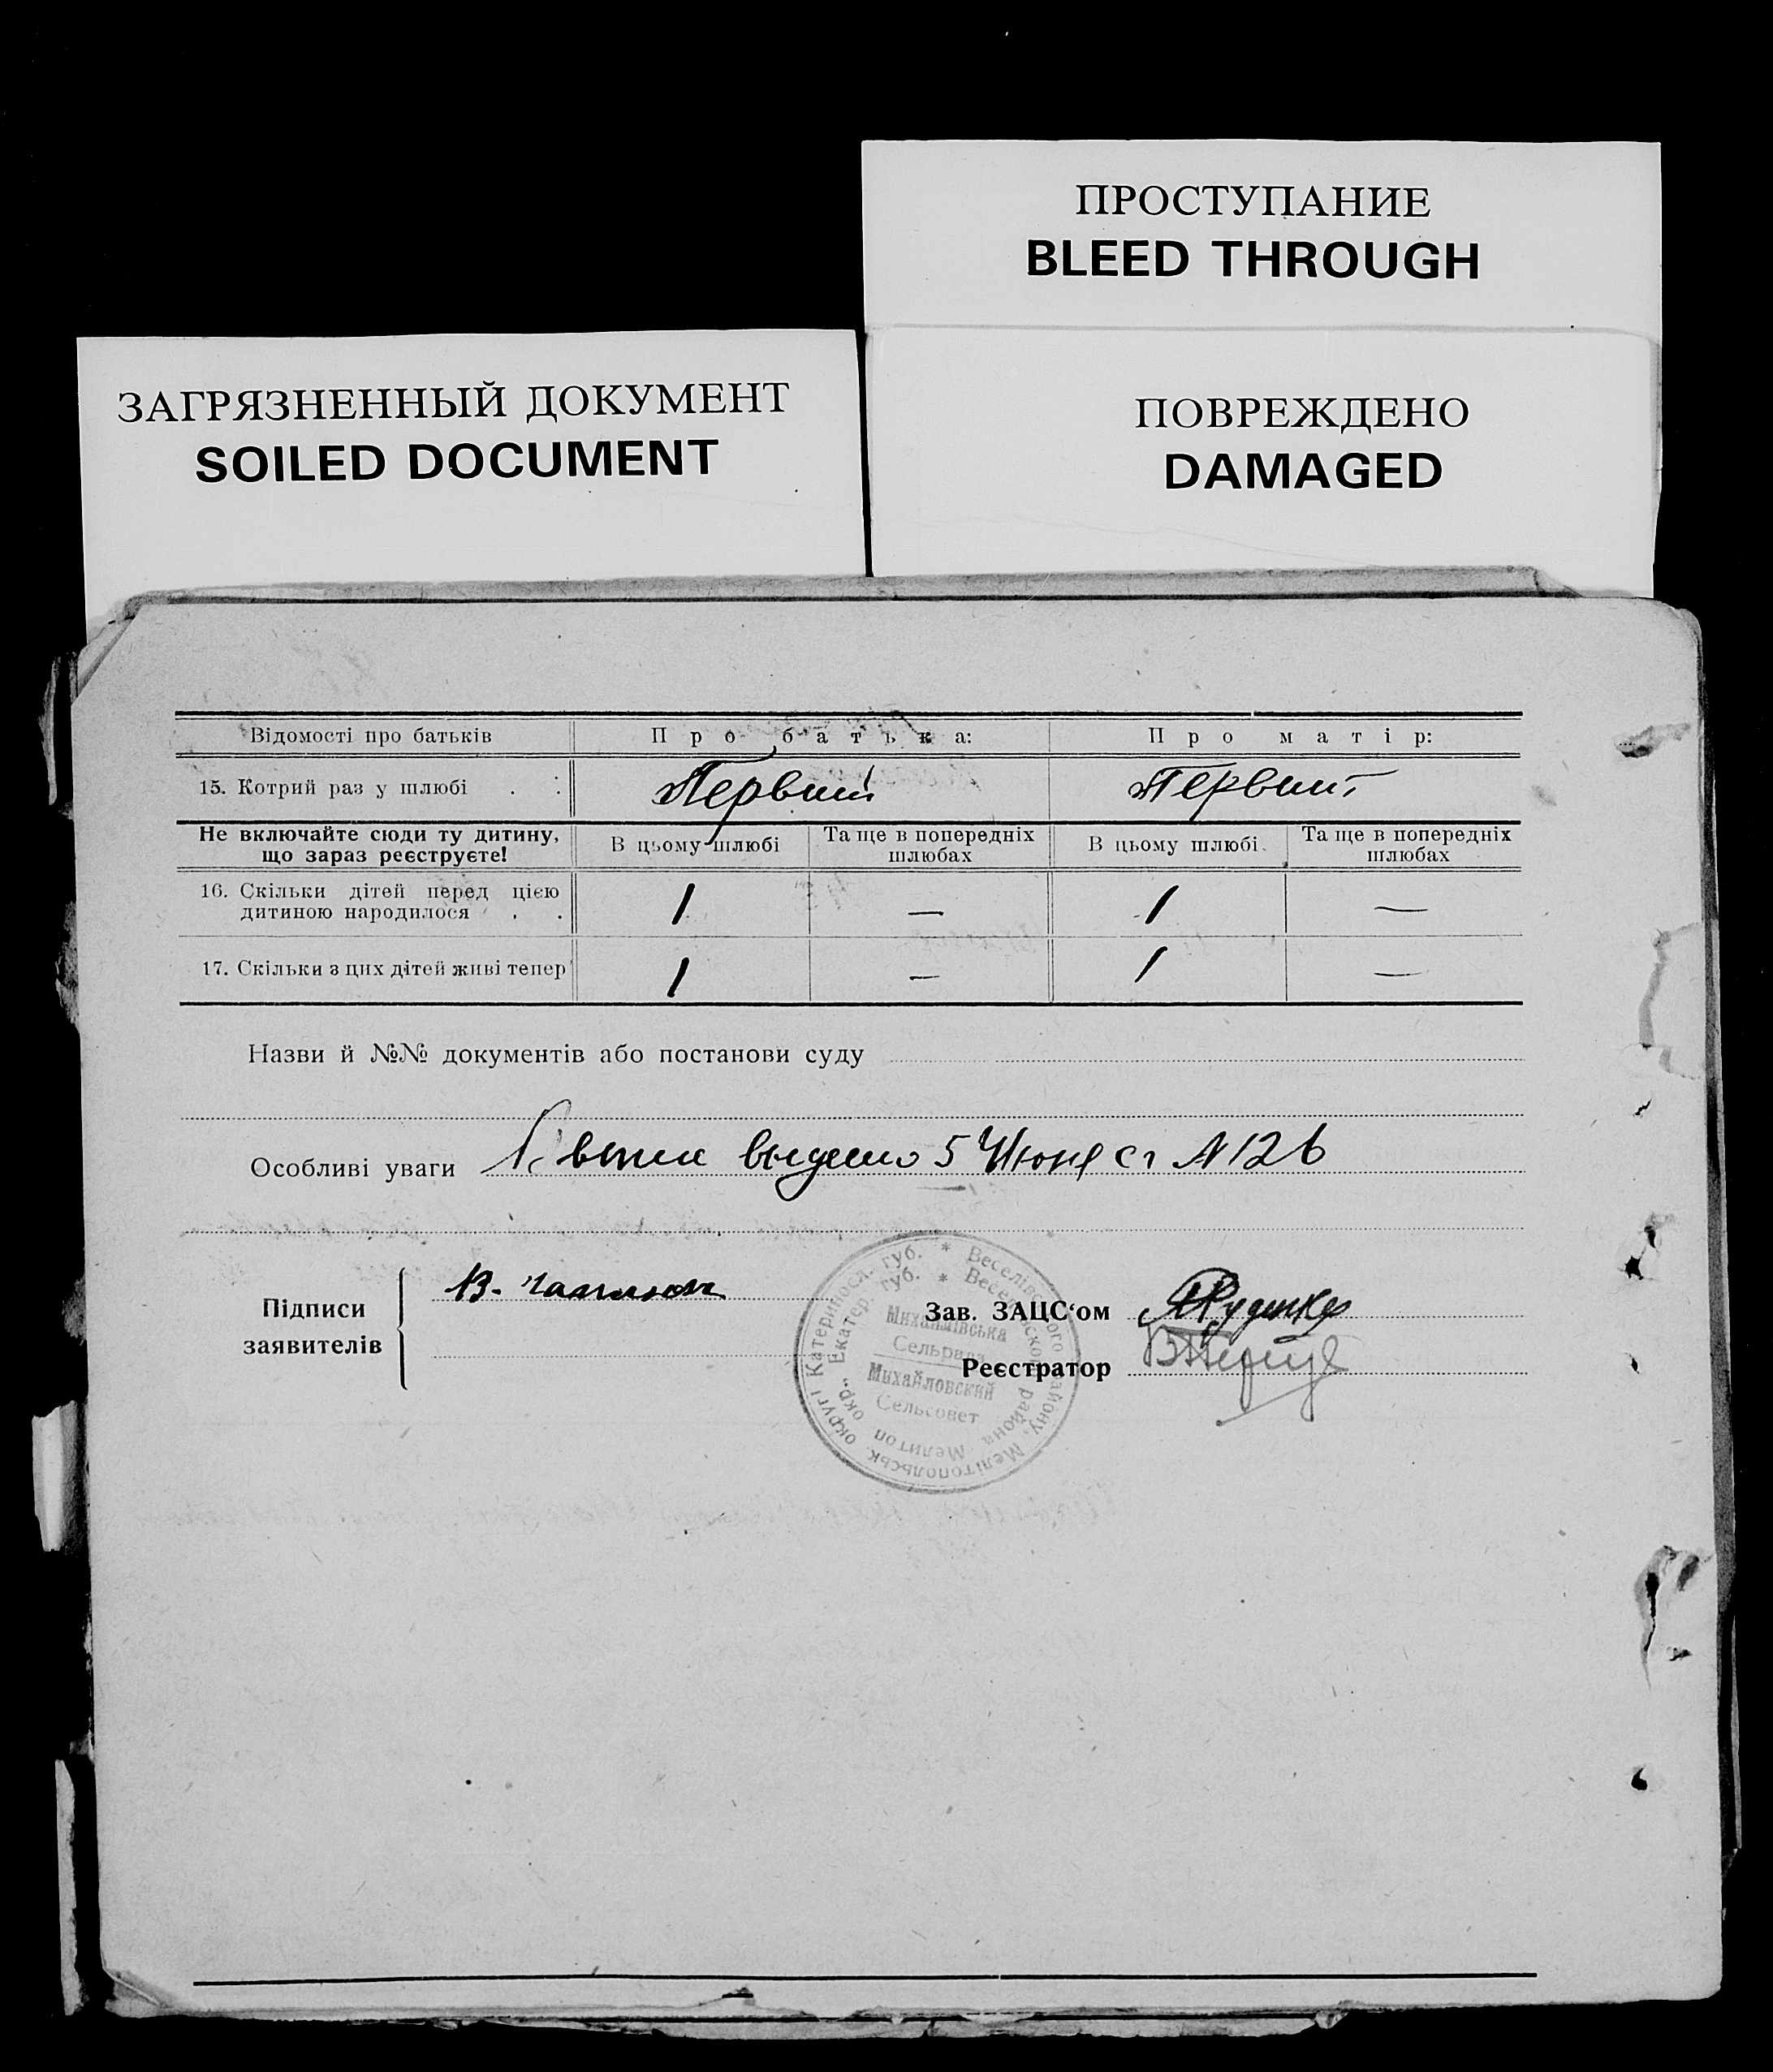 ПРОСТУПАНИЕ
BLEED THROUGH
ЗАГРЯЗНЕННЫЙ ДОКУМЕНТ
SOILED DOCUMENT
ПОВРЕЖДЕНО
DAMAGED
Відомості про батьків Про батька: Про матір:
15. Котрий раз у шлюбі . : Первий Первий
Не включайте сюди ту дитину, що зараз реєструєте! В цьому шлюбі Та ще в попередніх шлюбах В цьому шлюбі Та ще в попередніх шлюбах
16. Скільки дітей перед цією
дитиною народилося . . 1 — 1 —
17. Скільки з цих дітей живі тепер 1 — 1 —
Назви й №№ документів або постанови суду
Особливі уваги выдано 5 Июня сг N 126
Підписи
заявителів
В.
Зав. ЗАЦС‘ом Руденко
Реєстратор
Катериносл. губ. * Веселівського району, Мелітопольськ. округи
Екатер. губ. * Веселовского района Мелитоп. окр.
Михайлівська
Сельрада
Михайловский
Сельсовет